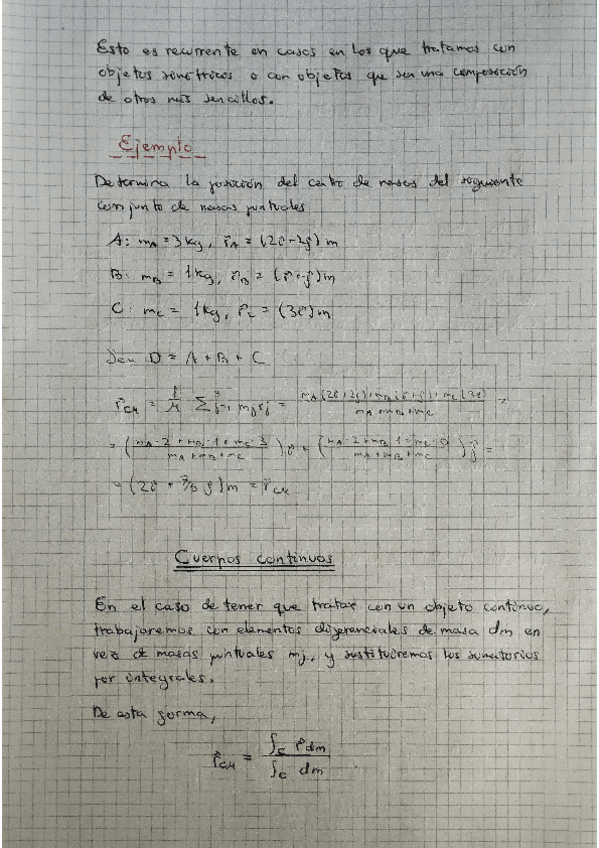 Esto es recurrente en casos en los que tratamos con
objetos simétricos o con objetos que sean una composición
de otros más sencillos.
Ejemplo
Determina la posición del centro de masas del siguiente
conjunto de masas puntuales
A: m_A = 3 kg, r⃗_A = (2i⃗+2j⃗) m
B: m_B = 1 kg, r⃗_B = (i⃗+j⃗) m
C: m_C = 1 kg, r⃗_C = (3i⃗) m
Sea D = A + B + C
r⃗_CM = 1/M Σ³_{j=1} m_j r_j = (m_A(2i⃗+2j⃗)+m_B(i⃗+j⃗)+m_C(3i⃗))/(m_A+m_B+m_C) =
= ((m_A·2+m_B·1+m_C·3)/(m_A+m_B+m_C)) i⃗ + ((m_A·2+m_B·1+m_C·0)/(m_A+m_B+m_C)) j⃗ =
= (2i⃗ + j⃗) m = r⃗_CM
Cuerpos continuos
En el caso de tener que tratar con un objeto continuo,
trabajaremos con elementos diferenciales de masa dm en
vez de masas puntuales mj, y sustituiremos los sumatorios
por integrales.
De esta forma,
r⃗_CM = ∫_C r⃗ dm / ∫_C dm